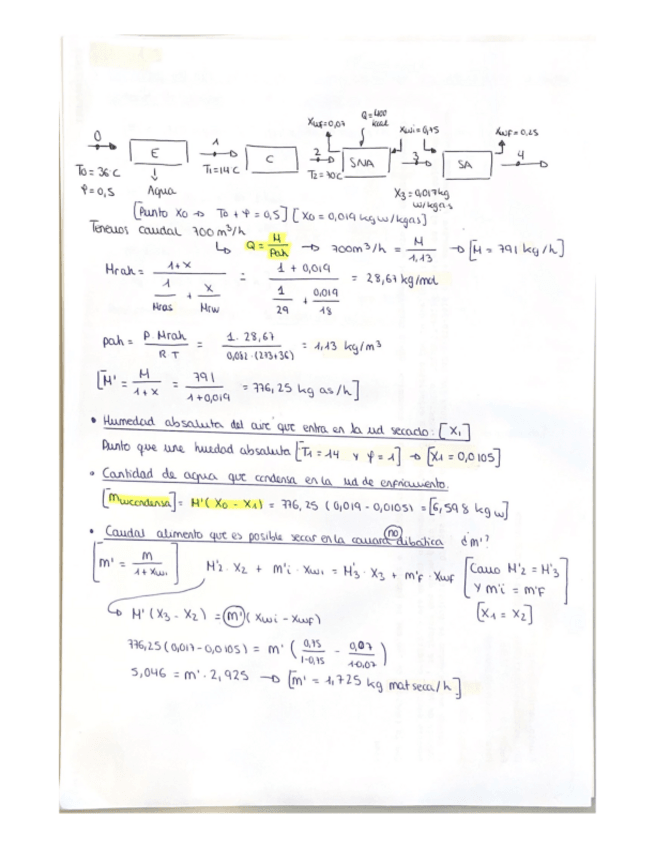 Q=400 kcal
Xwf=0,07
Xwi=0,75
Xwf=0,25
0
E
1
C
2
SNA
3
SA
4
T0=36 C
T1=14 C
T2=70C
φ=0,5
Agua
X3=0,017 kg w/kg as
[Punto X0 → T0 + φ=0,5] [X0=0,019 kg w/kgas]
Tenemos caudal 700 m³/h
↳ Q = M/ρah → 700m³/h = M/1,13 → [M = 791 kg/h]
Mrah = (1+x)/(1/Mras + x/Mrw) = (1+0,019)/(1/29 + 0,019/18) = 28,67 kg/mol
ρah = P Mrah/R T = 1. 28,67/0,082·(273+36) = 1,13 kg/m³
[M' = M/1+x = 791/1+0,019 = 776,25 kg as/h]
• Humedad absoluta del aire que entra en la ud secado: [X1]
Punto que une huedad absoluta [T1=14 y φ=1] → [X1=0,0105]
• Cantidad de agua que condensa en la ud de enfriamiento:
[Mwcondensa] = M'(X0 - X1) = 776,25 (0,019 - 0,0105) = [6,598 kg w]
• Caudal alimento que es posible secar en la camara no dibática ¿m'?
[m' = m/1+Xwi] M'2·X2 + m'i·Xwi = M'3·X3 + m'F·Xwf [Como M'2=M'3 y m'i=m'F]
[X1=X2]
↳ M'(X3 - X2) = m'(Xwi - Xwf)
776,25 (0,017-0,0105) = m' (0,75/1-0,75 - 0,07/1-0,07)
5,046 = m'·2,925 → [m' = 1,725 kg mat seca/h]